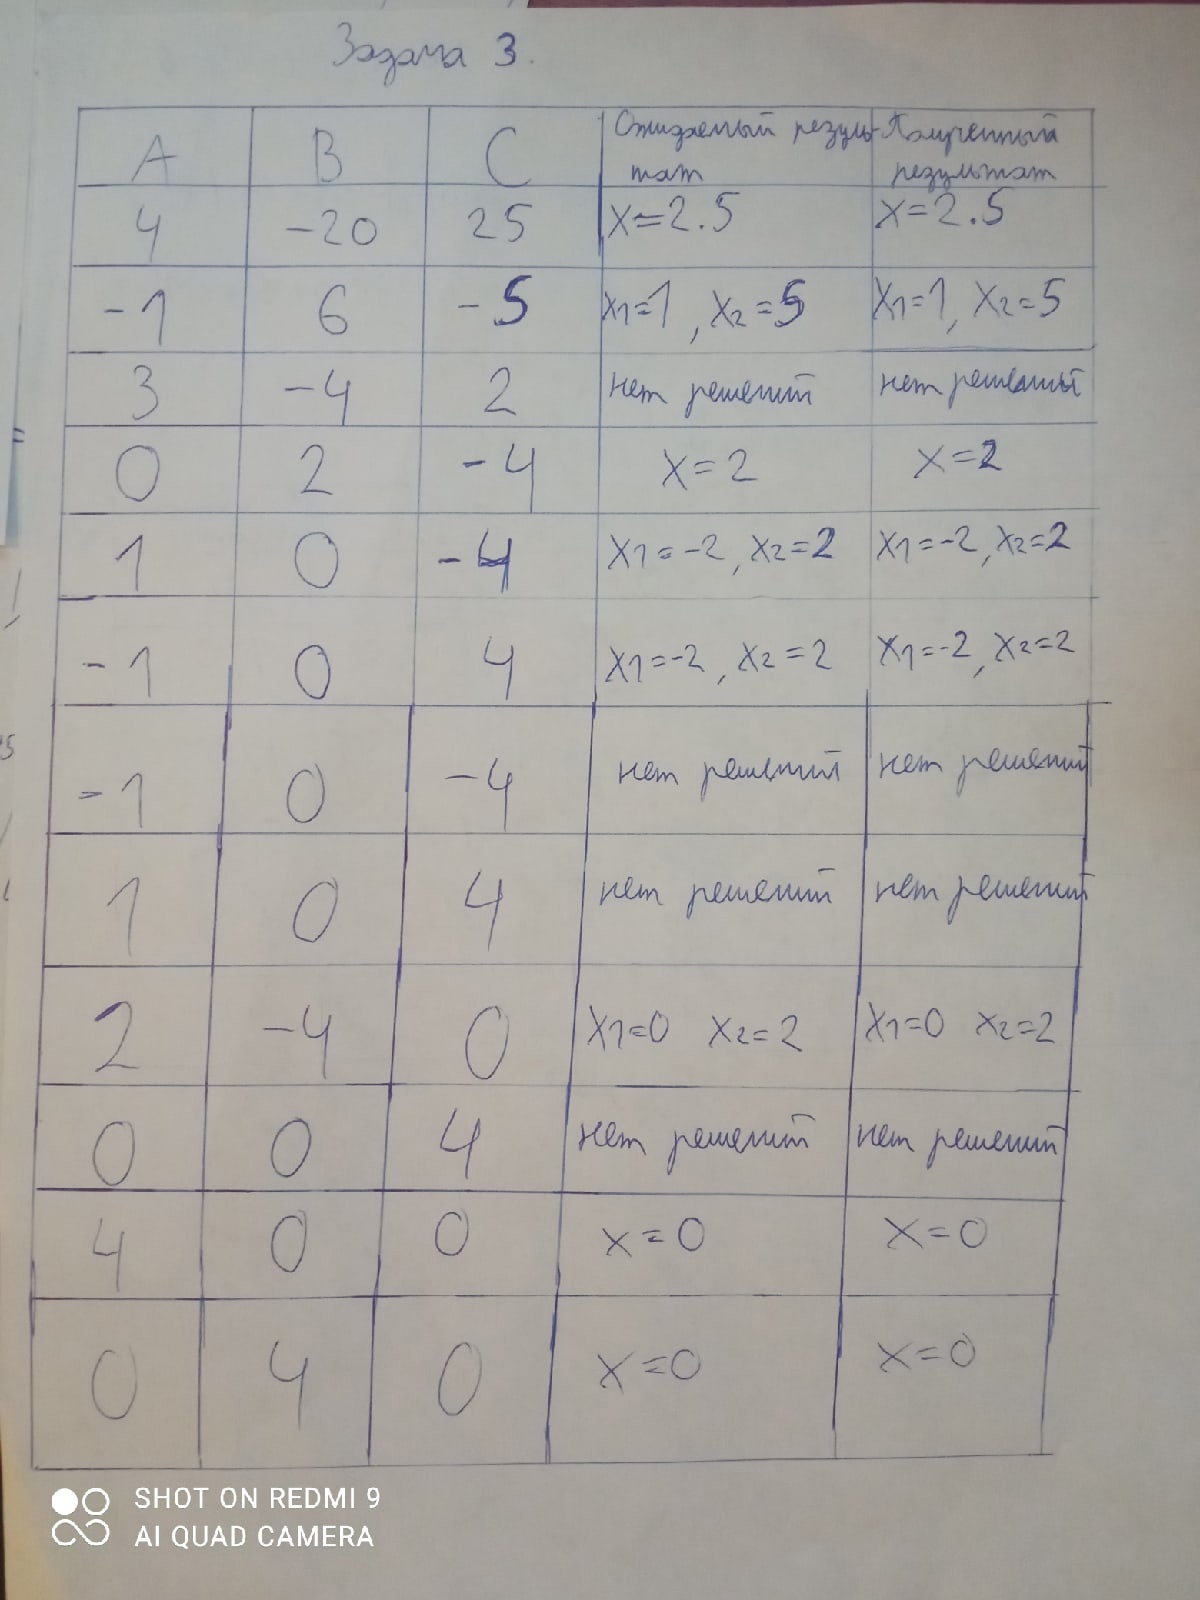 Задача 3.
A B C Ожидаемый резуль- Полученный
тат результат
4 -20 25 x=2.5 x=2.5
-1 6 -5 x1=1, x2=5 x1=1, x2=5
3 -4 2 нет решений нет решений
0 2 -4 x=2 x=2
1 0 -4 x1=-2, x2=2 x1=-2, x2=2
-1 0 4 x1=-2, x2=2 x1=-2, x2=2
-1 0 -4 нет решений нет решений
1 0 4 нет решений нет решений
2 -4 0 x1=0 x2=2 x1=0 x2=2
0 0 4 нет решений нет решений
4 0 0 x=0 x=0
0 4 0 x=0 x=0
SHOT ON REDMI 9
AI QUAD CAMERA